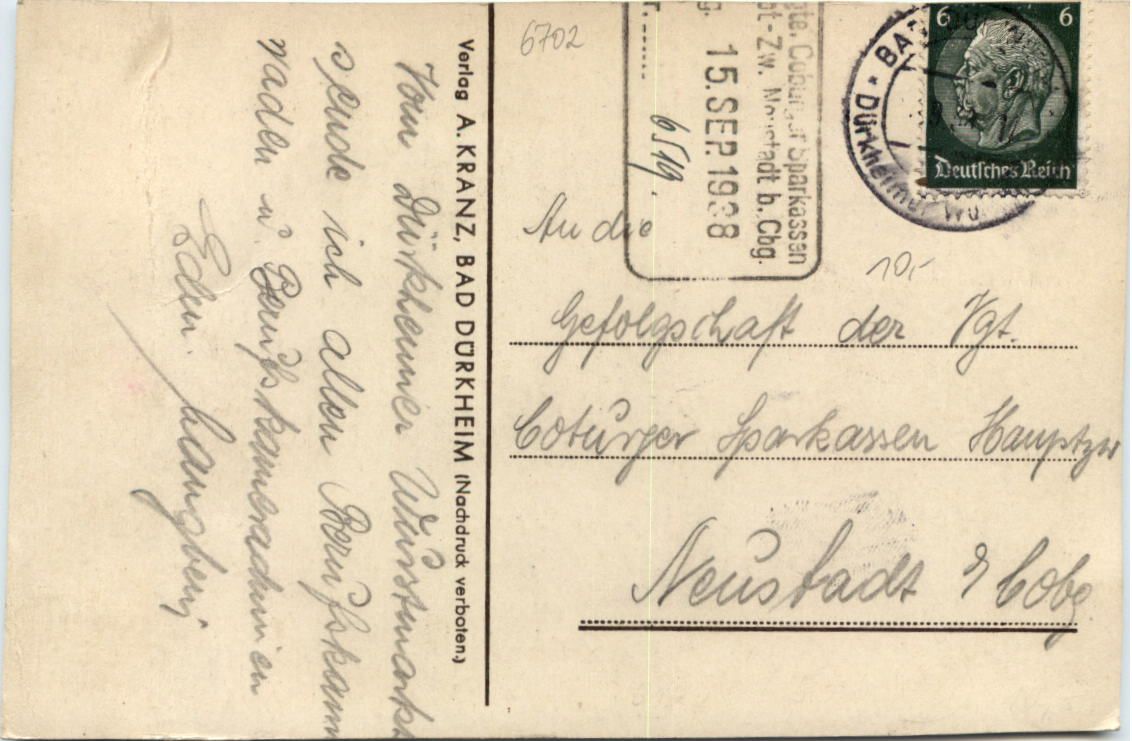 Vom Dürkheimer Wurstmarkt
sende ich allen Berufskame
raden u. Berufskameradinnen
Verlag A. KRANZ, BAD DÜRKHEIM (Nachdruck verboten.)
6702
gte. Coburger Sparkassen
pt-Zw. Neustadt b. Cbg.
15. SEP. 1938
6519.
6 6
Deutsches Reich
BAD
Dürkheimer Wu
10,-
An die
Gefolgschaft der Vgt.
Coburger Sparkassen Hauptzw
Neustadt b/ Cobg